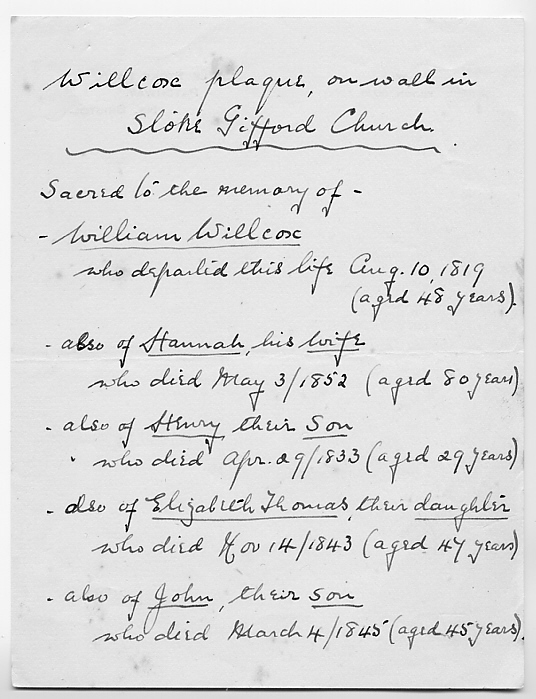 Willcox plaque, on wall in
Stoke Gifford Church.
Sacred to the memory of -
- William Willcox
who departed this life Aug. 10, 1819
(aged 48 years).
- also of Hannah, his wife
who died May 3/1852 (aged 80 years)
- also of Henry, their Son
who died Apr. 29/1833 (aged 29 years)
- also of Elizabeth Thomas, their daughter
who died Nov 14/1843 (aged 47 years)
- also of John, their Son
who died March 4/1845 (aged 45 years).